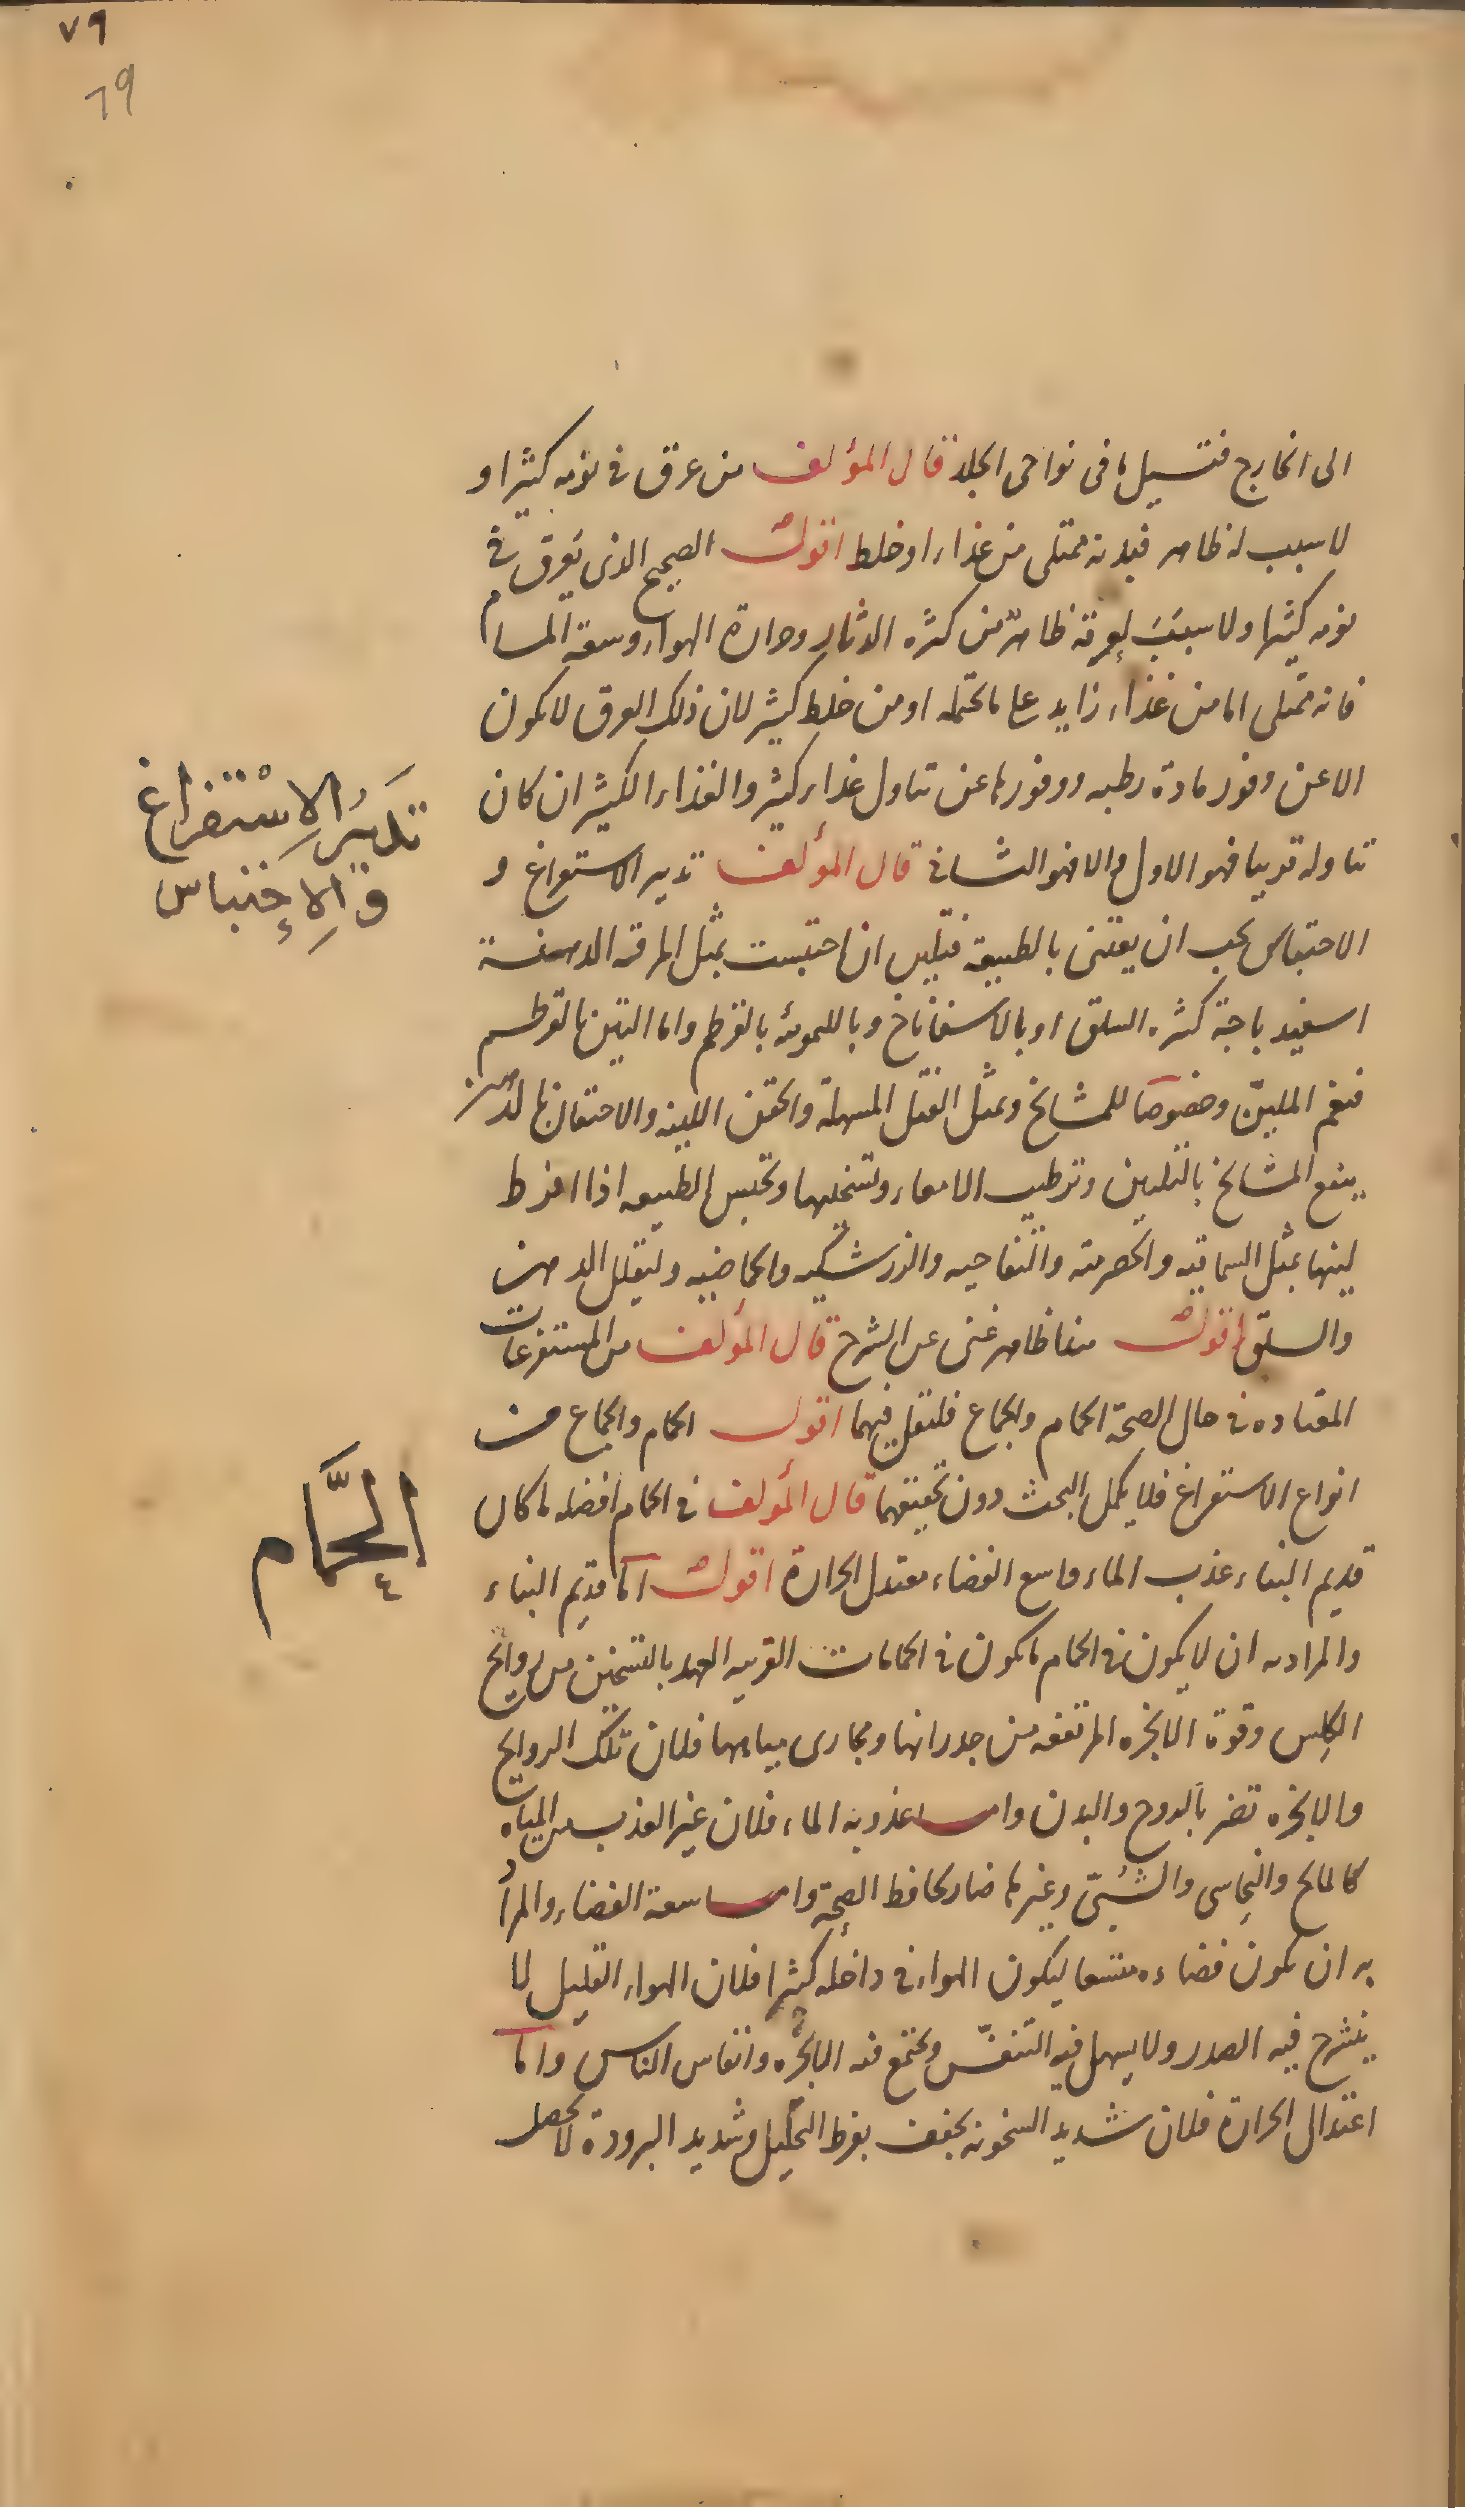 ٧٩
79
الى الخارج فتسيل ما فى نواحى الجلد قال المؤلف من عرق فى نومه كثيرا و
لا سبب له ظاهر فبدنه ممتلى من غذاء او خلط اقول الصحيح الذى يعرق فى
نومه كثيرا ولا سبب لعرقه ظاهر من كثره الدثار وحرارة الهواء وسعة المسام
فانه ممتلى اما من غذاء زايد على ما يحتمله او من خلط كثير لان ذلك العرق لا يكون
الا عن وفور مادة رطبه ووفورها عن تناول غذاء كثير والغذاء الكثير ان كان
تناوله قريبا فهو الاول والا فهو الثانى قال المؤلف تدبير الاستفراغ و
الاحتباس يجب ان يعتنى بالطبيعة فتلين ان احتبست بمثل المرقه الدهنة
اسفيد باجة كثره السلق او بالاسفاناخ وبالليموئه بالقرطم واما التين بالقرطم
فنعم الملين وخصوصا للمشايخ وبمثل الفتل المسهلة والحقن اللينه والاحتقان بالدهن
ينفع المشايخ بالتليين وترطيب الامعاء وتسخينها وتحبس الطبيعه اذا افرط
لينها بمثل السماقيه والحصرميه والتفاحيه والزرشكيه والحماضيه وليقلل الدهن
والسلق اقول هذا ظاهر غنى عن الشرح قال المؤلف من المستفرغات
المعتاده فى حال الصحة الحمام والجماع فلنقل فيهما اقول الحمام والجماع من
انواع الاستفراغ فلا يكمل البحث دون تحقيقهما قال المؤلف فى الحمام افضله ما كان
قديم البناء عذب الماء واسع الفضاء معتدل الحرارة اقول اما قديم البناء
والمراد به ان لا يكون فى الحمام ما يكون فى الحمامات القريبه العهد بالتسخين من روايح
الكلس وقوة الابخره المرتفعه من جدرانها ومجارى مياهها فلان تلك الروايح
والابخره تضر بالروح والبدن واما عذوبة الماء فلان غير العذب من المياه
كالمالح والنحاسى والشبّى وغيرها ضار بحافظ الصحة واما سعة الفضاء والمراد
به ان يكون فضاءه متسعا ليكون الهواء فى داخله كثيرا فلان الهواء القليل لا
ينشرح فيه الصدر ولا يسهل فيه التنفس ويجتمع فيه الابخره وانفاس الناس واما
اعتدال الحرارة فلان شديد السخونه يجفف بفرط التحليل وشديد البرودة لا يحصل
تَدبيرُ الاِسْتفراغ
وَ الاِحتباس
الحَمَّام